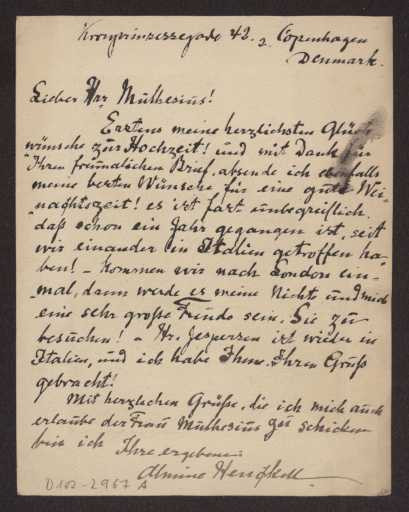 Kronprinzessegade 42. 2. Copenhagen
Denmark.
Lieber Hr. Muthesius!
Erstens meine herzlichsten Glück
wünsche zur Hochzeit! und mit Dank für
Ihren freundlichen Brief, absende ich ebenfalls
meine besten Wünsche für eine gute Wei-
nachtszeit! es ist fast unbegreiflich,
daß schon ein Jahr gegangen ist, seit
wir einander in Italien getroffen ha-
ben! – Kommen wir nach London ein-
mal, dann werde es meine Nichte und mich
eine sehr große Freude sein, Sie zu
besuchen! – Hr. Jespersen ist wieder in
Italien, und ich habe Ihm Ihren Gruß
gebracht!
Mit herzlichen Grüße, die ich mich auch
erlaube der Frau Muthesius zu schicken
bin ich Ihre ergebene
D 102-2967 A